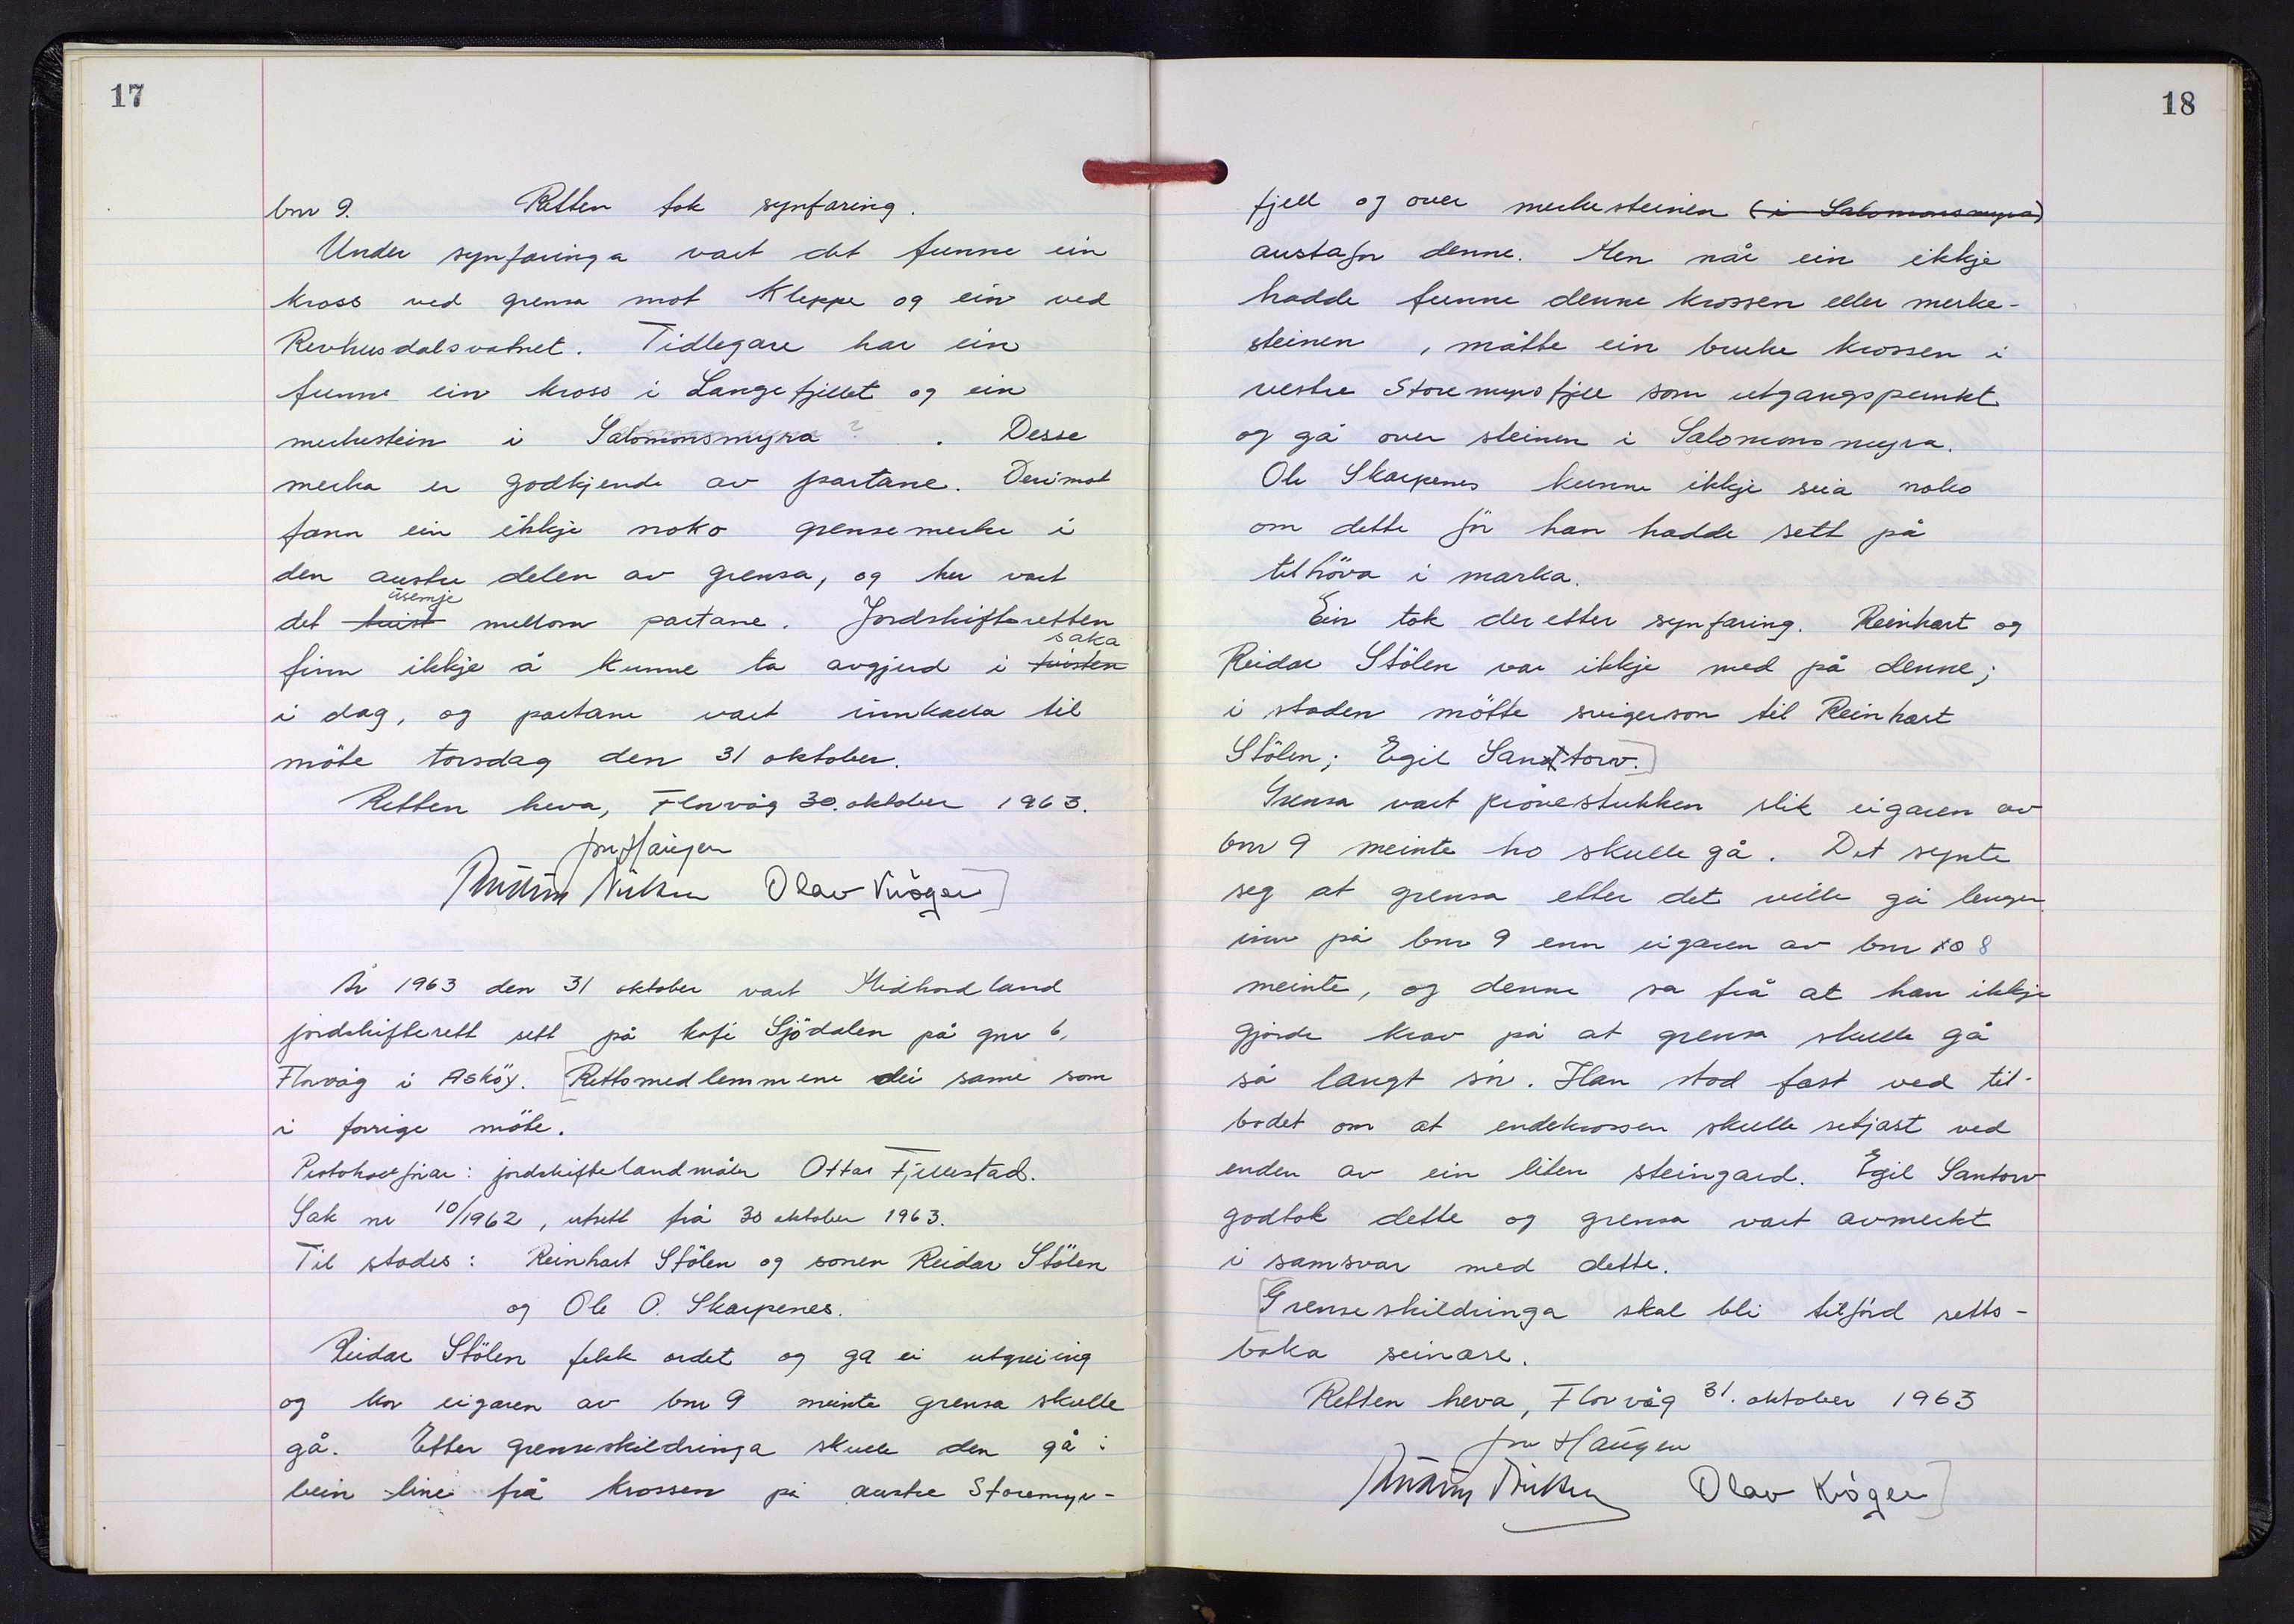 17
bnr 9. Retten tok synfaring.
Under synfaringa vart det funne ein
kross ved grensa mot Kleppe og ein ved
Revhusdalsvatnet. Tidlegare har ein
funne ein kross i Langefjellet og ein
merkestein i Salomonsmyra ? . Desse
merka er godkjende av partane. Derimot
fann ein ikkje noko grensemerke i
den austre delen av grensa, og her vart
usemje
det tvist mellom partane. Jordskifteretten
saka
finn ikkje å kunne ta avgjerd i tvisten
i dag, og partane vart innkalla til
möte torsdag den 31 oktober.
Retten heva, Florvåg 30. oktober 1963.
Jon Haugen
Olav Kröger
År 1963 den 31 oktober vart Midhordland
jordskifterett sett på kafe Sjödalen på gnr 6,
Florvåg i Asköy. [Rettsmedlemmene dei same som
i forrige möte.
Protokollförar: jordskiftelandmåler Ottar Fjellestad.
Sak nr 10/1962, utsett frå 30 oktober 1963.
Til stades: Reinhart Stölen og sonen Reidar Stölen
og Ole O. Skarpenes.
Reidar Stölen fekk ordet og ga ei utgreiing
og kor eigaren av bnr 9 meinte grensa skulle
gå. Etter grenseskildringa skulle den gå i
bein line frå krossen på austre Storemyr-
18
fjell og over merkesteinen (i Salomonsmyra)
austafor denne. Men når ein ikkje
hadde funne denne krossen eller merke-
steinen , måtte ein bruke krossen i
vestre Storemyrsfjell som utgangspunkt
og gå over steinen i Salomonsmyra.
Ole Skarpenes kunne ikkje seia noko
om dette för han hadde sett på
tilhöva i marka.
Ein tok deretter synfaring. Reinhart og
Reidar Stölen var ikkje med på denne;
i staden mötte svigerson til Reinhart
Stölen; Egil Santtorv.]
Grensa vart prövestukken slik eigaren av
bnr 9 meinte ho skulle gå. Det synte
seg at grensa etter det ville gå lenger
inn på bnr 9 enn eigaren av bnr 10 8
meinte, og denne sa frå at han ikkje
gjorde krav på at grensa skulle gå
så langt sör. Han stod fast ved til-
bodet om at endekrossen skulle setjast ved
enden av ein liten steingard. Egil Santorv
godtok dette og grensa vart avmerkt
i samsvar med dette.
[Grenseskildringa skal bli tilförd retts-
boka seinare.
Retten heva, Florvåg 31. oktober 1963
Jon Haugen
Olav Kröger]